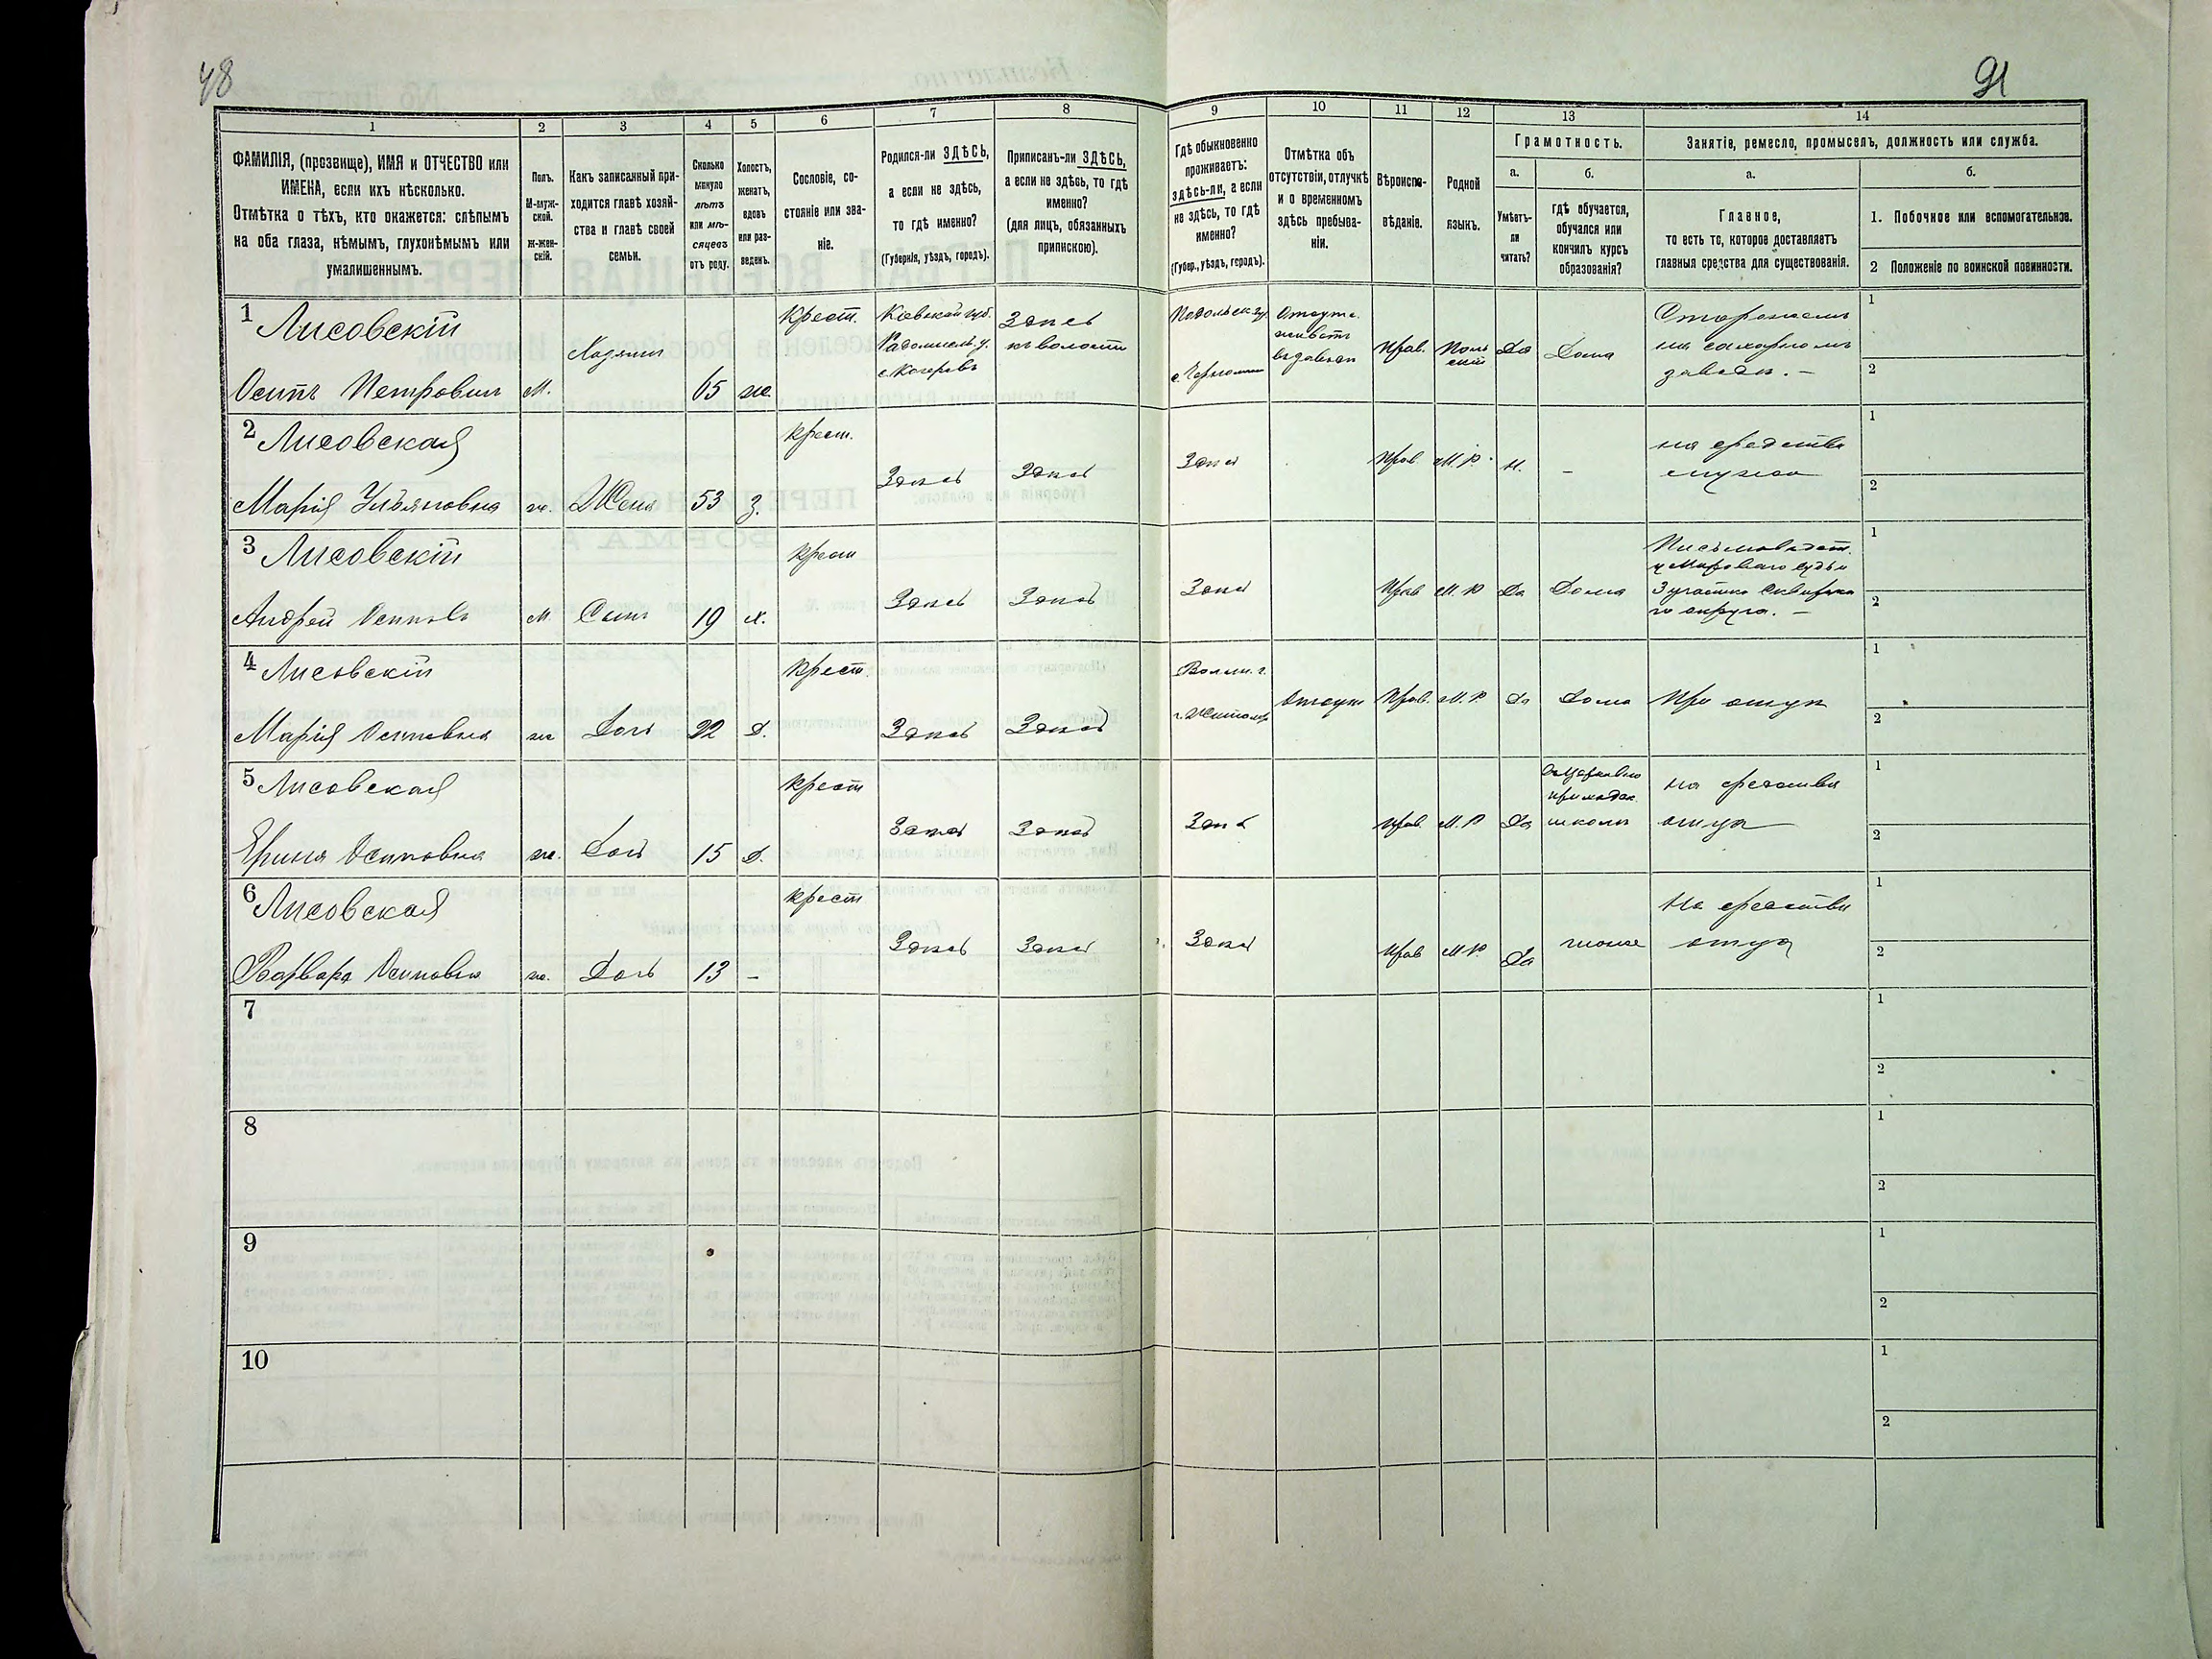 48
91
1
2
3
4
5
6
7
8
9
10
11
12
13
14
ФАМИЛІЯ, (прозвище), ИМЯ и ОТЧЕСТВО или
ИМЕНА, если ихъ нѣсколько.
Отмѣтка о тѣхъ, кто окажется: слѣпымъ
на оба глаза, нѣмымъ, глухонѣмымъ или
умалишеннымъ.
Полъ.
М-муж-
ской.
Ж-жен-
скій.
Какъ записанный при-
ходится главѣ хозяй-
ства и главѣ своей
семьи.
Сколько
минуло
лѣтъ
или мѣ-
сяцевъ
отъ роду.
Холостъ,
женатъ,
вдовъ
или раз-
веденъ.
Сословіе, со-
стояніе или зва-
ніе.
Родился-ли ЗДѢСЬ,
а если не здѣсь,
то гдѣ именно?
(Губернія, уѣздъ, городъ).
Приписанъ-ли ЗДѢСЬ,
а если не здѣсь, то гдѣ
именно?
(для лицъ, обязанныхъ
припискою).
Гдѣ обыкновенно
проживаетъ:
здѣсь-ли, а если
не здѣсь, то гдѣ
именно?
(Губер., уѣздъ, городъ).
Отмѣтка объ
отсутствіи, отлучкѣ
и о временномъ
здѣсь пребыва-
ніи.
Вѣроиспо-
вѣданіе.
Родной
языкъ.
Грамотность.
а.
Умѣетъ-
ли
читать?
б.
гдѣ обучается,
обучался или
кончилъ курсъ
образованія?
Занятіе, ремесло, промыселъ, должность или служба.
а.
Главное,
то есть то, которое доставляетъ
главныя средства для существованія.
б.
1. Побочное или вспомогательное.
2 Положеніе по воинской повинности.
1 Лисовскій
Осипъ Петровичъ
М.
Хозяинъ
65
ж.
Крест.
Кіевской губ.
Радомысль. у.
с. Кочеровъ
Здѣсь
къ волости
Подольск. гу.
Отсутс.
живетъ
Прав.
Поль
скій
Да
Дома
Сторожемъ
на сахарномъ
заводѣ. –
1
2
2 Лисовская
Марія Ульяновна
ж.
Жена
53
З.
Крест.
Здѣсь
Здѣсь
Здѣсь
Прав
М. Р.
Н.
–
на средства
мужа
1
2
3 Лисовскій
Андрей Осиповъ
М
Сынъ
19
х.
Крест
Здѣсь
Здѣсь
Здѣсь
Прав
М. Р
Да
Дома
Письмоводит.
у Мироваго судьи
3 участка Сквирска
го округа. –
1
2
4 Лисовскій
Марія Осиповна
ж
Дочь
22
Д.
Крест.
Здѣсь
Здѣсь
Волын. г.
г. Житомир
Отсутс
Прав.
М. Р.
Да
Дома
При отцѣ
1
2
5 Лисовская
Ерина Осиповна
ж.
Дочь
15
Д.
Крест
Здѣсь
Здѣсь
Здѣсь
Прав.
М. Р
Да
школѣ
на средства
отца
1
2
6 Лисовская
Варвара Осиповна
ж.
Дочь
13
–
Крест
Здѣсь
Здѣсь
Здѣсь
Прав
М. Р.
Да
тоже
На средства
отца
1
2
7
1
2
8
1
2
9
1
2
10
1
2